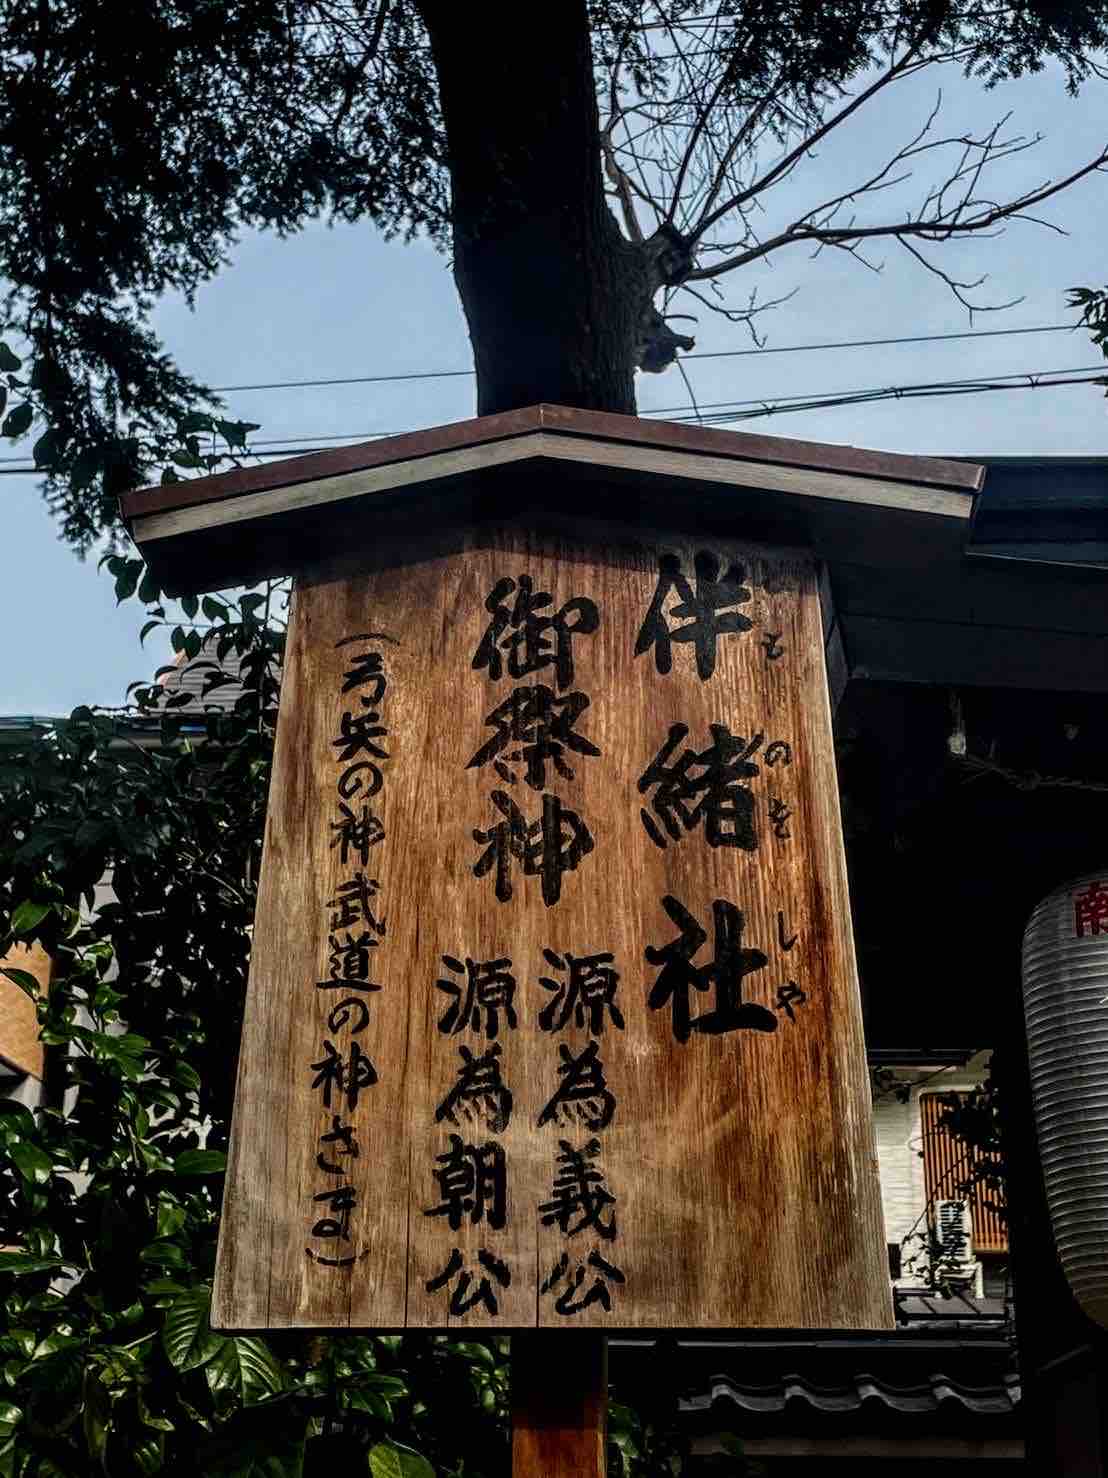 伴緒社
とものをしや
御祭神
源為義公
源為朝公
(弓矢の神武道の神さま)
南